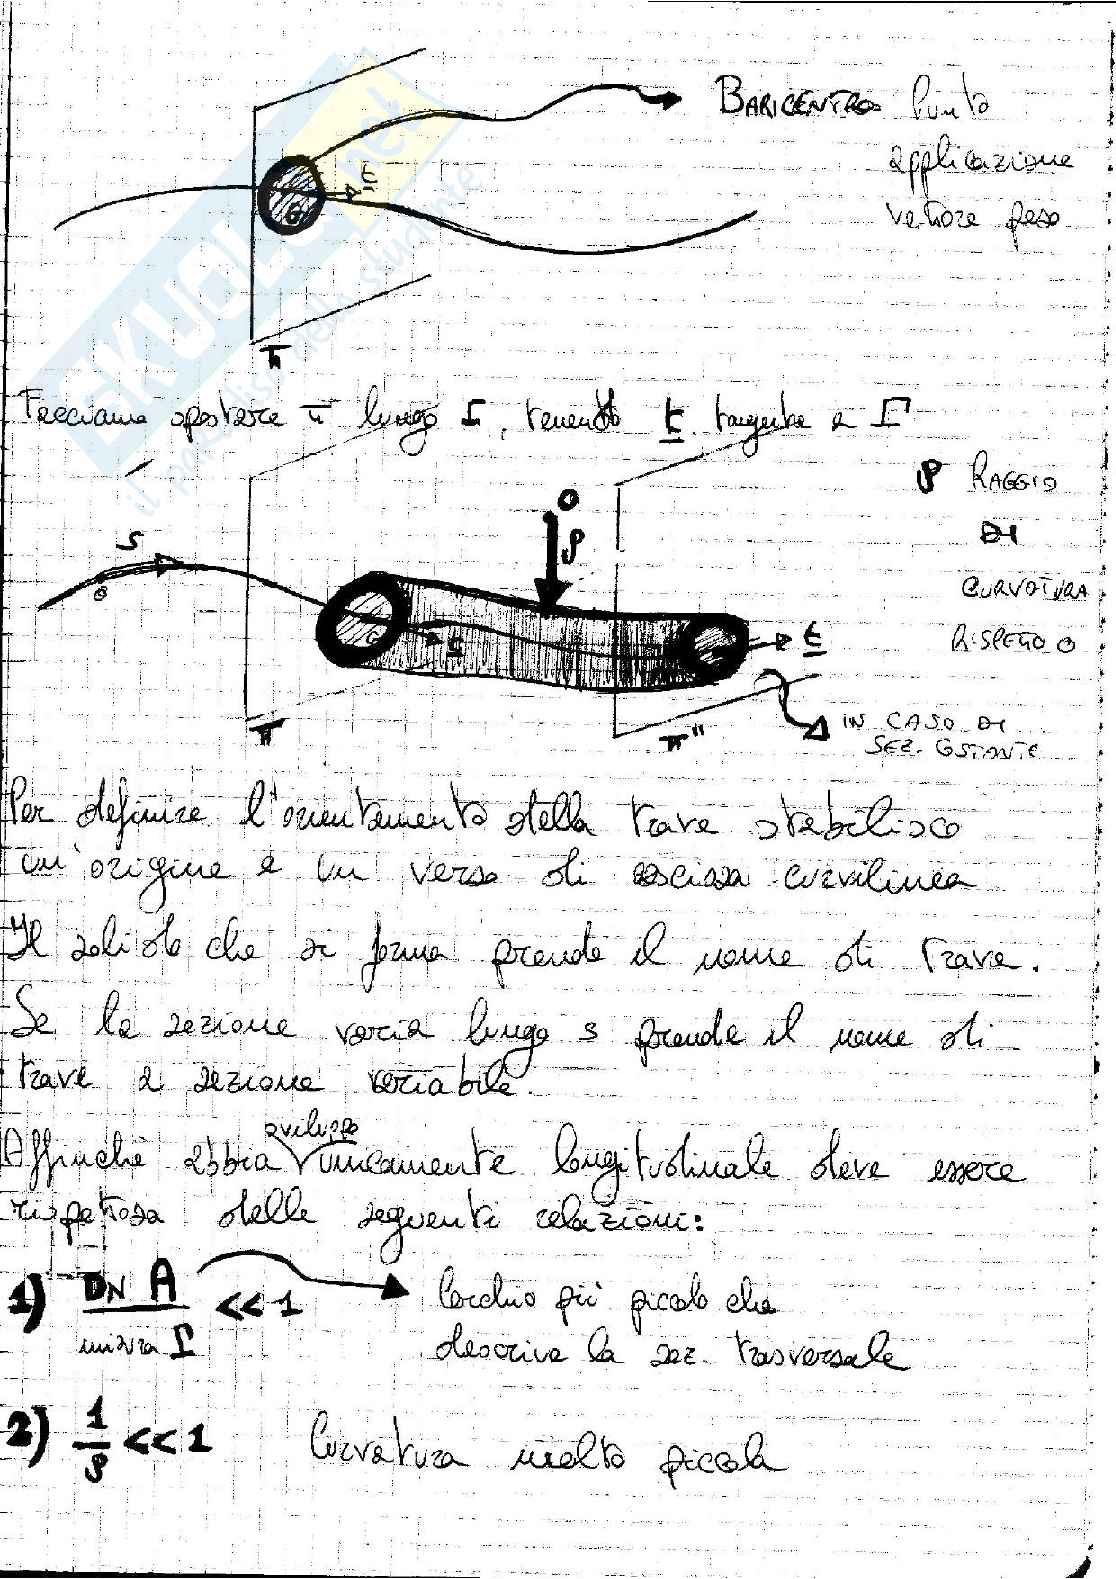 BARICENTRO Punto
applicazione
vettore peso
G
t
π
Facciamo spostare π lungo Γ, tenendo t tangente a Γ
ρ RAGGIO
DI
CURVATURA
RISPETTO O
S
O
O
ρ
G
t
t
π
π"
IN CASO DI
SEZ. COSTANTE
Per definire l'orientamento della trave stabilisco
un'origine e un verso di ascissa curvilinea
Il solido che si forma prende il nome di trave.
Se la sezione varia lungo s prende il nome di
trave a sezione variabile.
Affinché abbia sviluppo unicamente longitudinale deve essere
rispettosa delle seguenti relazioni:
1) DN A / misura Γ <<1 Cerchio più piccolo che
descrive la sez. trasversale
2) 1/ρ <<1 Curvatura molto piccola
SKUOLA.net